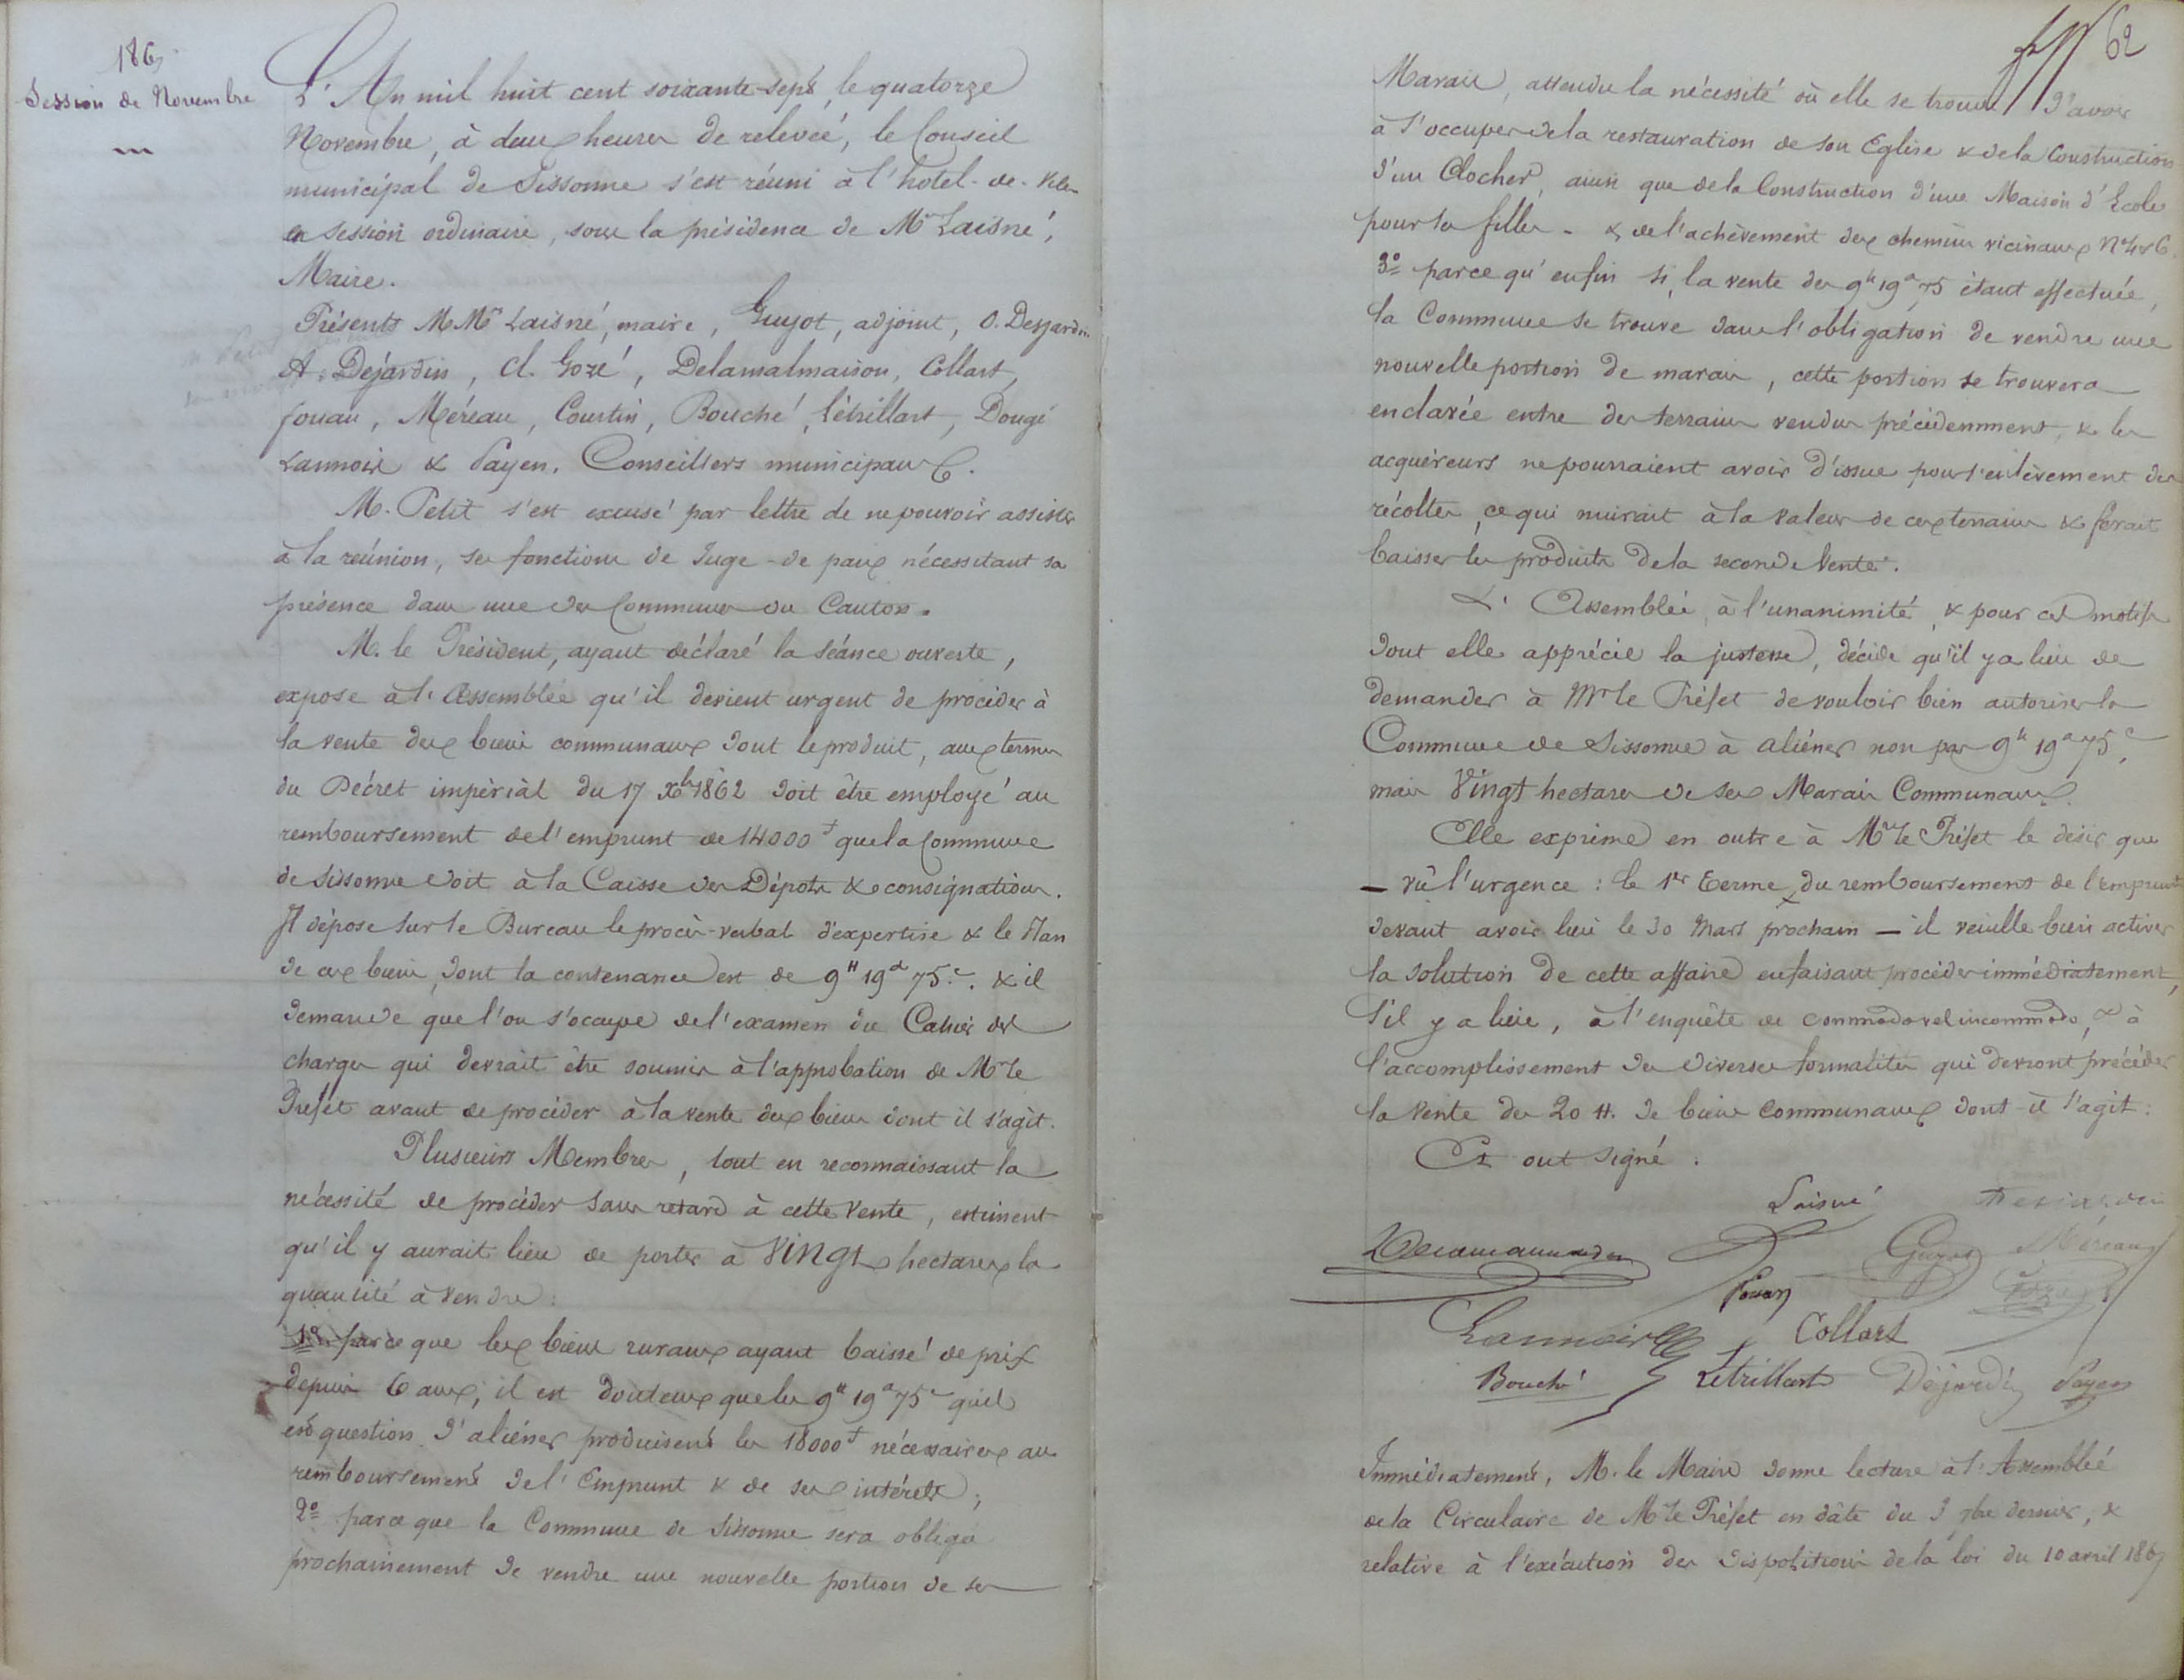 1867
Session de Novembre
L'An mil huit cent soixante-sept, le quatorze
Novembre, à deux heures de relevée, le Conseil
municipal de Sissonne s'est réuni à l'hotel-de-Ville
en session ordinaire, sous la présidence de Mr Laisné,
Maire.
Présents MMrs Laisné, maire, Guyot, adjoint, O. Desjardin
A. Déjardin, Cl. Gozé, Delamalmaison, Collart,
fouan, Méreau, Courtin, Bouché, Létrillart, Dougé
Lannoix & Payen, Conseillers municipaux.
M. Petit s'est excusé par lettre de ne pouvoir assister
à la réunion, ses fonctions de Juge-de paix nécessitant sa
présence dans une des Communes du Canton.
M. le Président, ayant déclaré la séance ouverte,
expose à l'Assemblée qu'il devient urgent de procéder à
la vente des biens communaux dont le produit, aux termes
du Décret impérial du 17 Xbre 1862 doit être employé au
remboursement de l'emprunt de 14000 f que la Commune
de Sissonne doit à la Caisse des Dépots & consignations.
Il dépose sur le Bureau le procès-verbal d'expertise & le Plan
de ces biens, dont la contenance est de 9H 19a 75c. & il
demande que l'on s'occupe de l'examen du Cahier des
charges qui devrait être soumis à l'approbation de Mr le
Préfet avant de procéder à la vente des biens dont il s'agit.
Plusieurs Membres, tout en reconnaissant la
nécessité de procéder sans retard à cette Vente, estiment
qu'il y aurait lieu de porter à Vingt hectares la
quantité à vendre:
1° parce que les biens ruraux ayant baissé de prix
depuis 6 ans, il est douteux que les 9H 19a 75c qu'il
est question d'aliéner produisent les 18000 f nécessaires au
remboursement de l'Emprunt & de ses intérêts;
2° parce que la Commune de Sissonne sera obligée
prochainement de vendre une nouvelle portion de ses
62
Marais, attendu la nécessité où elle se trouve d'avoir
à s'occuper de la restauration de son Eglise & de la Construction
d'un Clocher, ainsi que de la Construction d'une Maison d'Ecole
pour les filles - & de l'achèvement des chemins vicinaux Nos 4 & 6.
3° parce qu'enfin si, la vente des 9h 19a 75 étant effectuée,
la Commune se trouve dans l'obligation de vendre une
nouvelle portion de marais, cette portion se trouvera
enclavée entre des terrains vendus précédemment, & les
acquéreurs ne pourraient avoir d'issue pour l'enlèvement des
récoltes, ce qui nuirait à la valeur de ces terrains & ferait
baisser les produits de la seconde Vente.
L'Assemblée, à l'unanimité, & pour ces motifs
dont elle apprécie la justesse, décide qu'il y a lieu de
demander à Mr le Préfet de vouloir bien autoriser la
Commune de Sissonne à aliéner non pas 9h 19a 75c,
mais Vingt hectares de ses Marais Communaux.
Elle exprime en outre à Mr le Préfet le désir que
— vû l'urgence : le 1er Terme du remboursement de l'emprunt
devant avoir lieu le 30 Mars prochain — il veuille bien activer
la solution de cette affaire en faisant procéder immédiatement,
s'il y a lieu, à l'enquête de commodo vel incommodo, & à
l'accomplissement des diverses formalités qui devront précéder
la Vente des 20 H. de biens Communaux dont-il s'agit:
Et ont signé.
Laisné
Guyot Méreau
Fouan
Lannoix Collart
Bouché Létrillart Déjardin Payen
Immédiatement, M. le Maire donne lecture à l'Assemblée
de la Circulaire de Mr le Préfet en dâte du 3 7bre dernier, &
relative à l'exécution des dispositions de la loi du 10 avril 1867